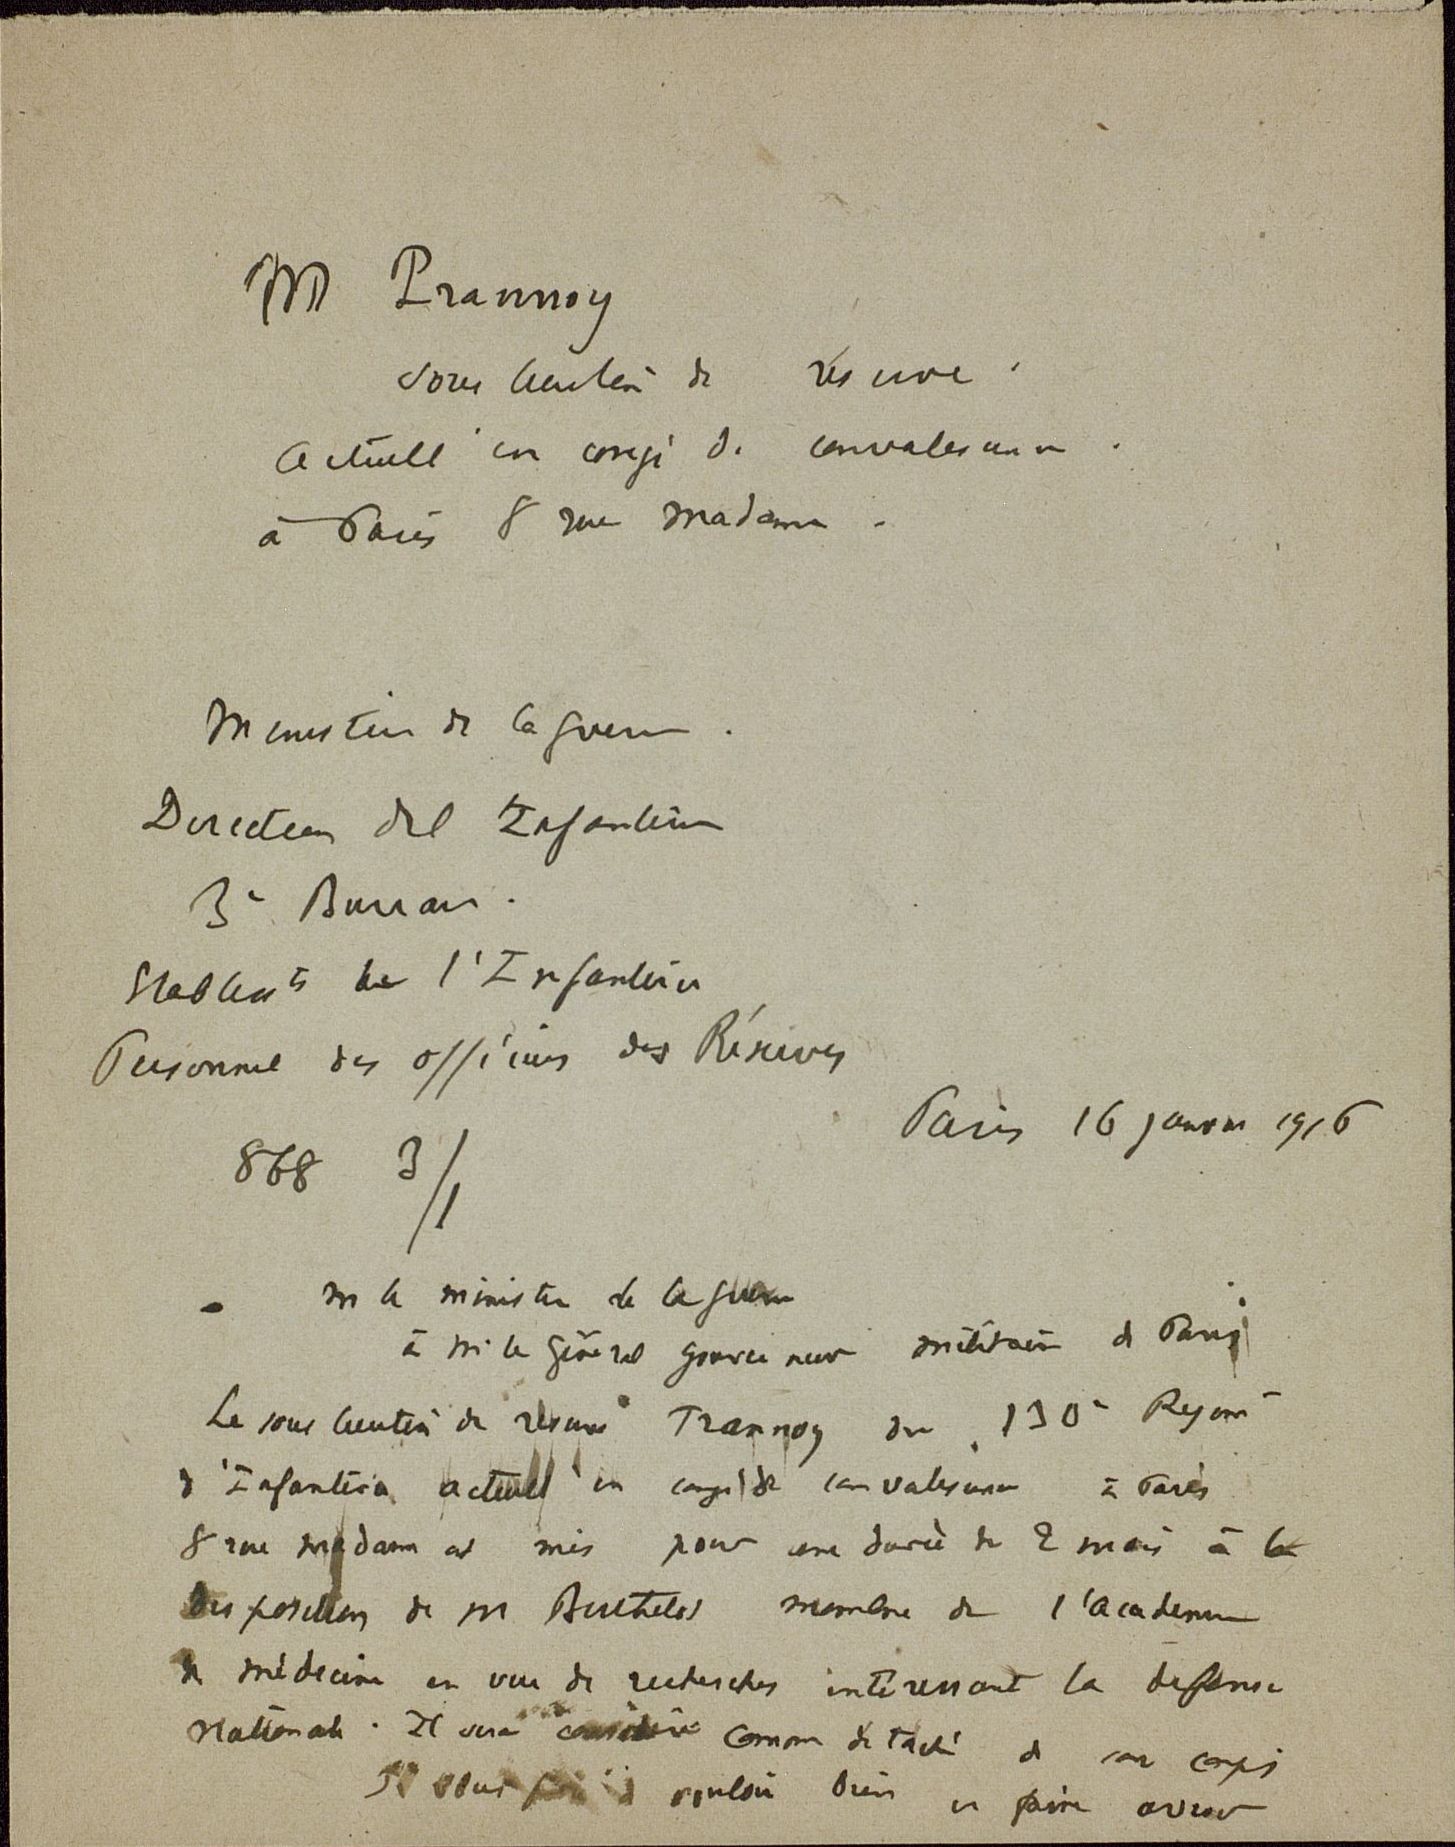 M Trannoy
sous lieuten^t de réserve.
Actuell^t en congé de convalescence.
à Paris 8 rue Madame.
Ministère de la guerre.
Direction de l'Infanterie
3e Bureau.
l'Infanterie
Personnel des officiers des Réserves
Paris 16 janvier 1916
868 3/1
M le ministre de la guerre
à M. le Général gouverneur militaire de Paris
Le sous lieuten^t de réserve Trannoy du 130e Régim^t
d'Infanterie actuell^t en congé de convalescence à Paris
8 rue Madame est mis pour une durée de 2 mois à la
disposition de M Berthelot membre de l'academie
de médecine en vue de recherches intéressant la défense
Nationale. Il sera considéré comme détaché de son corps
vouloir bien en faire aviser